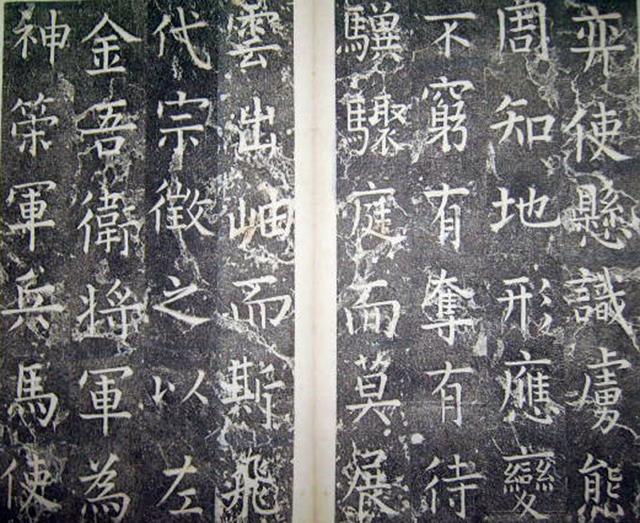 弈使懸識虜態
周知地形應變
不窮有奪有待
驥驟庭而莫展
雲出岫而斯飛
代宗徵之以左
金吾衛將軍為
神策軍兵馬使